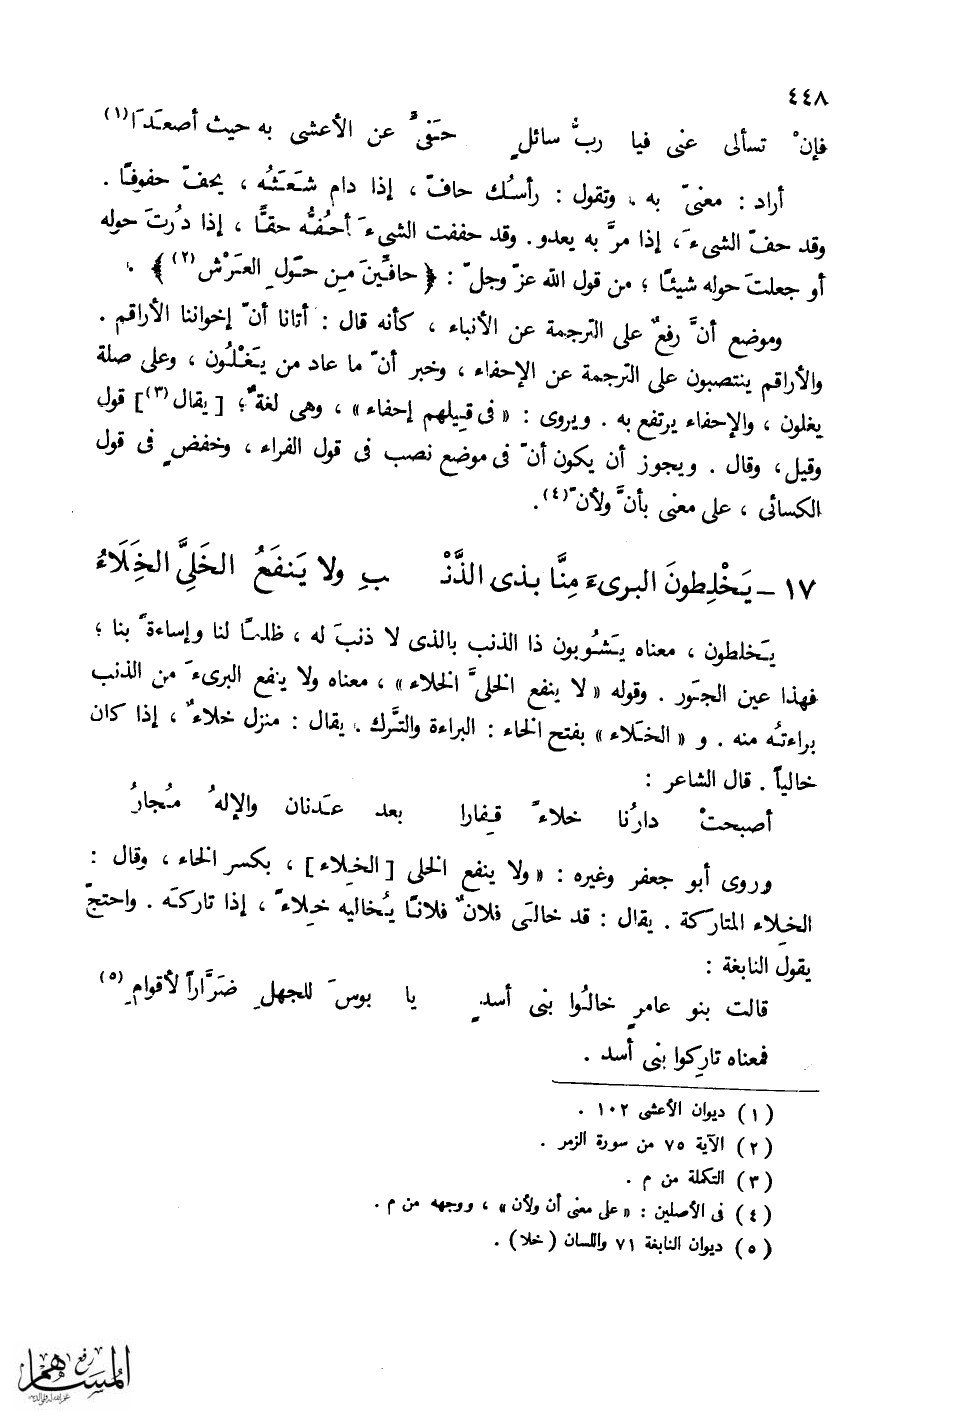 ٤٤٨
فإنْ تسألى عنى فيا ربُّ سائلٍ حَفىٌّ عن الأعشى به حيث أصعَدَا(١)
أراد : معنىّ به ، وتقول : رأسُك حافّ ، إذا دام شَعَثُه ، يحفّ حفوفًا .
وقد حفّ الشىءَ، إذا مرَّ به يعدو. وقد حففت الشىءَ أحُفُّه حفًّا ، إذا دُرتَ حوله
أو جعلتَ حوله شيئًا ؛ من قول الله عزّ وجلّ : ﴿ حافِّينَ مِن حَول ِ العَرْش (٢)﴾ .
وموضع أنَّ رفعٌ على الترجمة عن الأنباء ، كأنه قال : أتانا أنّ إخواننا الأراقم .
والأراقم ينتصبون على الترجمة عن الإحفاء ، وخبر أنّ ما عاد من يَغْلُون ، وعلى صلة
يغلون ، والإحفاء يرتفع به . ويروى : « فى قِيلهم إحفاء » ، وهى لغةٌ؛ [ يقال (٣)] قول
وقيل، وقال . ويجوز أن يكون أنّ فى موضع نصب فى قول الفراء ، وخفضٍ فى قول
الكسائى ، على معنى بأنَّ ولأنّ(٤).
١٧ – يَخْلِطونَ البرىءَ مِنَّا بذى الذَّنْـ ـبِ ولا يَنفَعُ الخَلِىَّ الخَلَاءُ
يَخلطون ، معناه يَشُوبون ذا الذنب بالذى لا ذنبَ له ، ظلمًا لنا وإساءةً بنا ؛
فهذا عين الجَور . وقوله « لا ينفع الخلىَّ الخلاء » ، معناه ولا ينفع البرىءَ من الذنب
براءتُه منه . و « الخَلاء » بفتح الخاء : البراءة والتَّرك . يقال : منزل خلاءٌ ، إذا كان
خالياً . قال الشاعر :
أصبحتْ دارُنا خلاءً قِفارا بعد عَدنان والإلهُ مُجارُ
وروى أبو جعفر وغيره : « ولا ينفع الخلى [ الخِلاء ] ، بكسر الخاء ، وقال :
الخِلاء المتاركة . يقال : قد خالَى فلانٌ فلانًا يُخاليه خِلاءً ، إذا تاركَه . واحتجّ
يقول النابغة :
قالت بنو عامرٍ خالُوا بنى أسدٍ يا بوسَ للجهلِ ضَرَّاراً لأقوامِ (٥)
فمعناه تارِكوا بنى أسد .
( ١ ) ديوان الأعشى ١٠٢ .
( ٢ ) الآية ٧٥ من سورة الزمر .
( ٣ ) التكملة من م .
( ٤ ) فى الأصلين : « على معنى أن ولأن » ، ووجهه من م .
( ٥ ) ديوان النابغة ٧١ واللسان ( خلا ) .